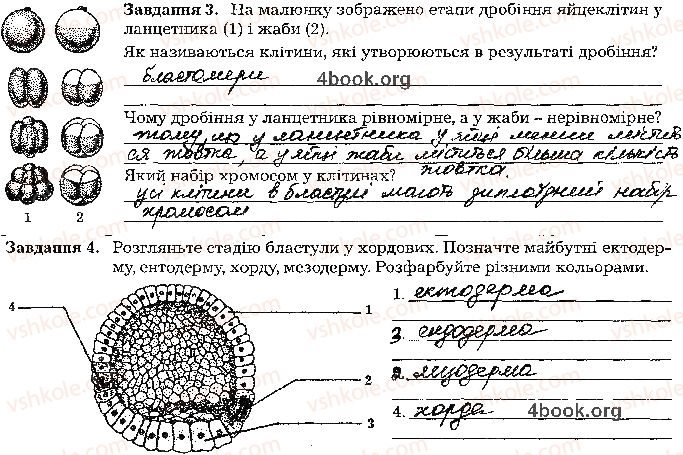 Завдання 3. На малюнку зображено етапи дробіння яйцеклітин у
ланцетника (1) і жаби (2).
Як називаються клітини, які утворюються в результаті дробіння?
бластомери
4book.org
Чому дробіння у ланцетника рівномірне, а у жаби – нерівномірне?
тому, що у ланцетника у яйці менше містить
ся жовтка, а у яйці жаби міститься більша кількість
жовтка.
Який набір хромосом у клітинах?
усі клітини в бластулі мають диплоїдний набір
хромосом
1 2
Завдання 4. Розгляньте стадію бластули у хордових. Позначте майбутні ектодер-
му, ентодерму, хорду, мезодерму. Розфарбуйте різними кольорами.
4
1
2
3
1. ектодерма
3. ендодерма
2. мезодерма
4. хорда
4book.org
vshkole.com